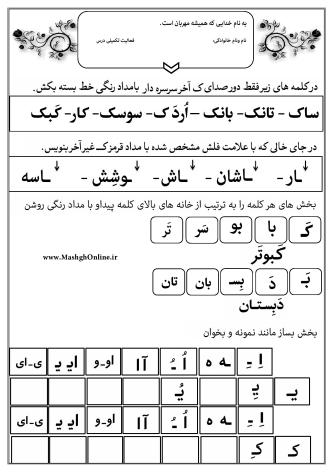 به نام خدایی که همیشه مهربان است.
نام ونام خانوادگی: فعالیت تکمیلی درس
درکلمه های زیرفقط دورصدای ک آخرسرسره دار بامداد رنگی خط بسته بکش.
ساک - تانک- بانک – اُردَک- سوسک- کار- کَبک
در جای خالی که با علامت فلش مشخص شده با مداد قرمزک غیرآخربنویس.
ـار- ـاشان - ـاش- ـوشِش - ـاسه
بخش های هر کلمه را به ترتیب از خانه های بالای کلمه پیداو با مداد رنگی روشن
کَـ با بو سَر تَر
کَبوتَر
www.MashghOnline.ir
بَـ دَ بِسـ بان تان
دَبِستان
بخش بساز مانند نمونه و بخوان
اِ ـِ ـه ه اُ ـُ آ ا او-و ایـ یـ ی-ای
یـ یِـ یُـ
اِ ـِ ـه ه اُ ـُ آ ا او-و ایـ یـ ی-ای
کـ کِـ